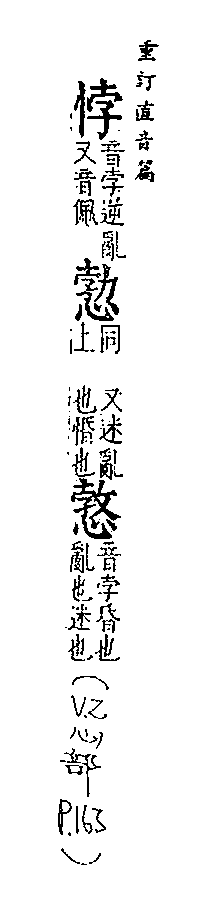 重訂直音篇
悖
音孛逆亂
又音佩
愂
同
上
又迷亂
也惛也
音孛昏也
亂也迷也
(V.2
心部
P.163
)